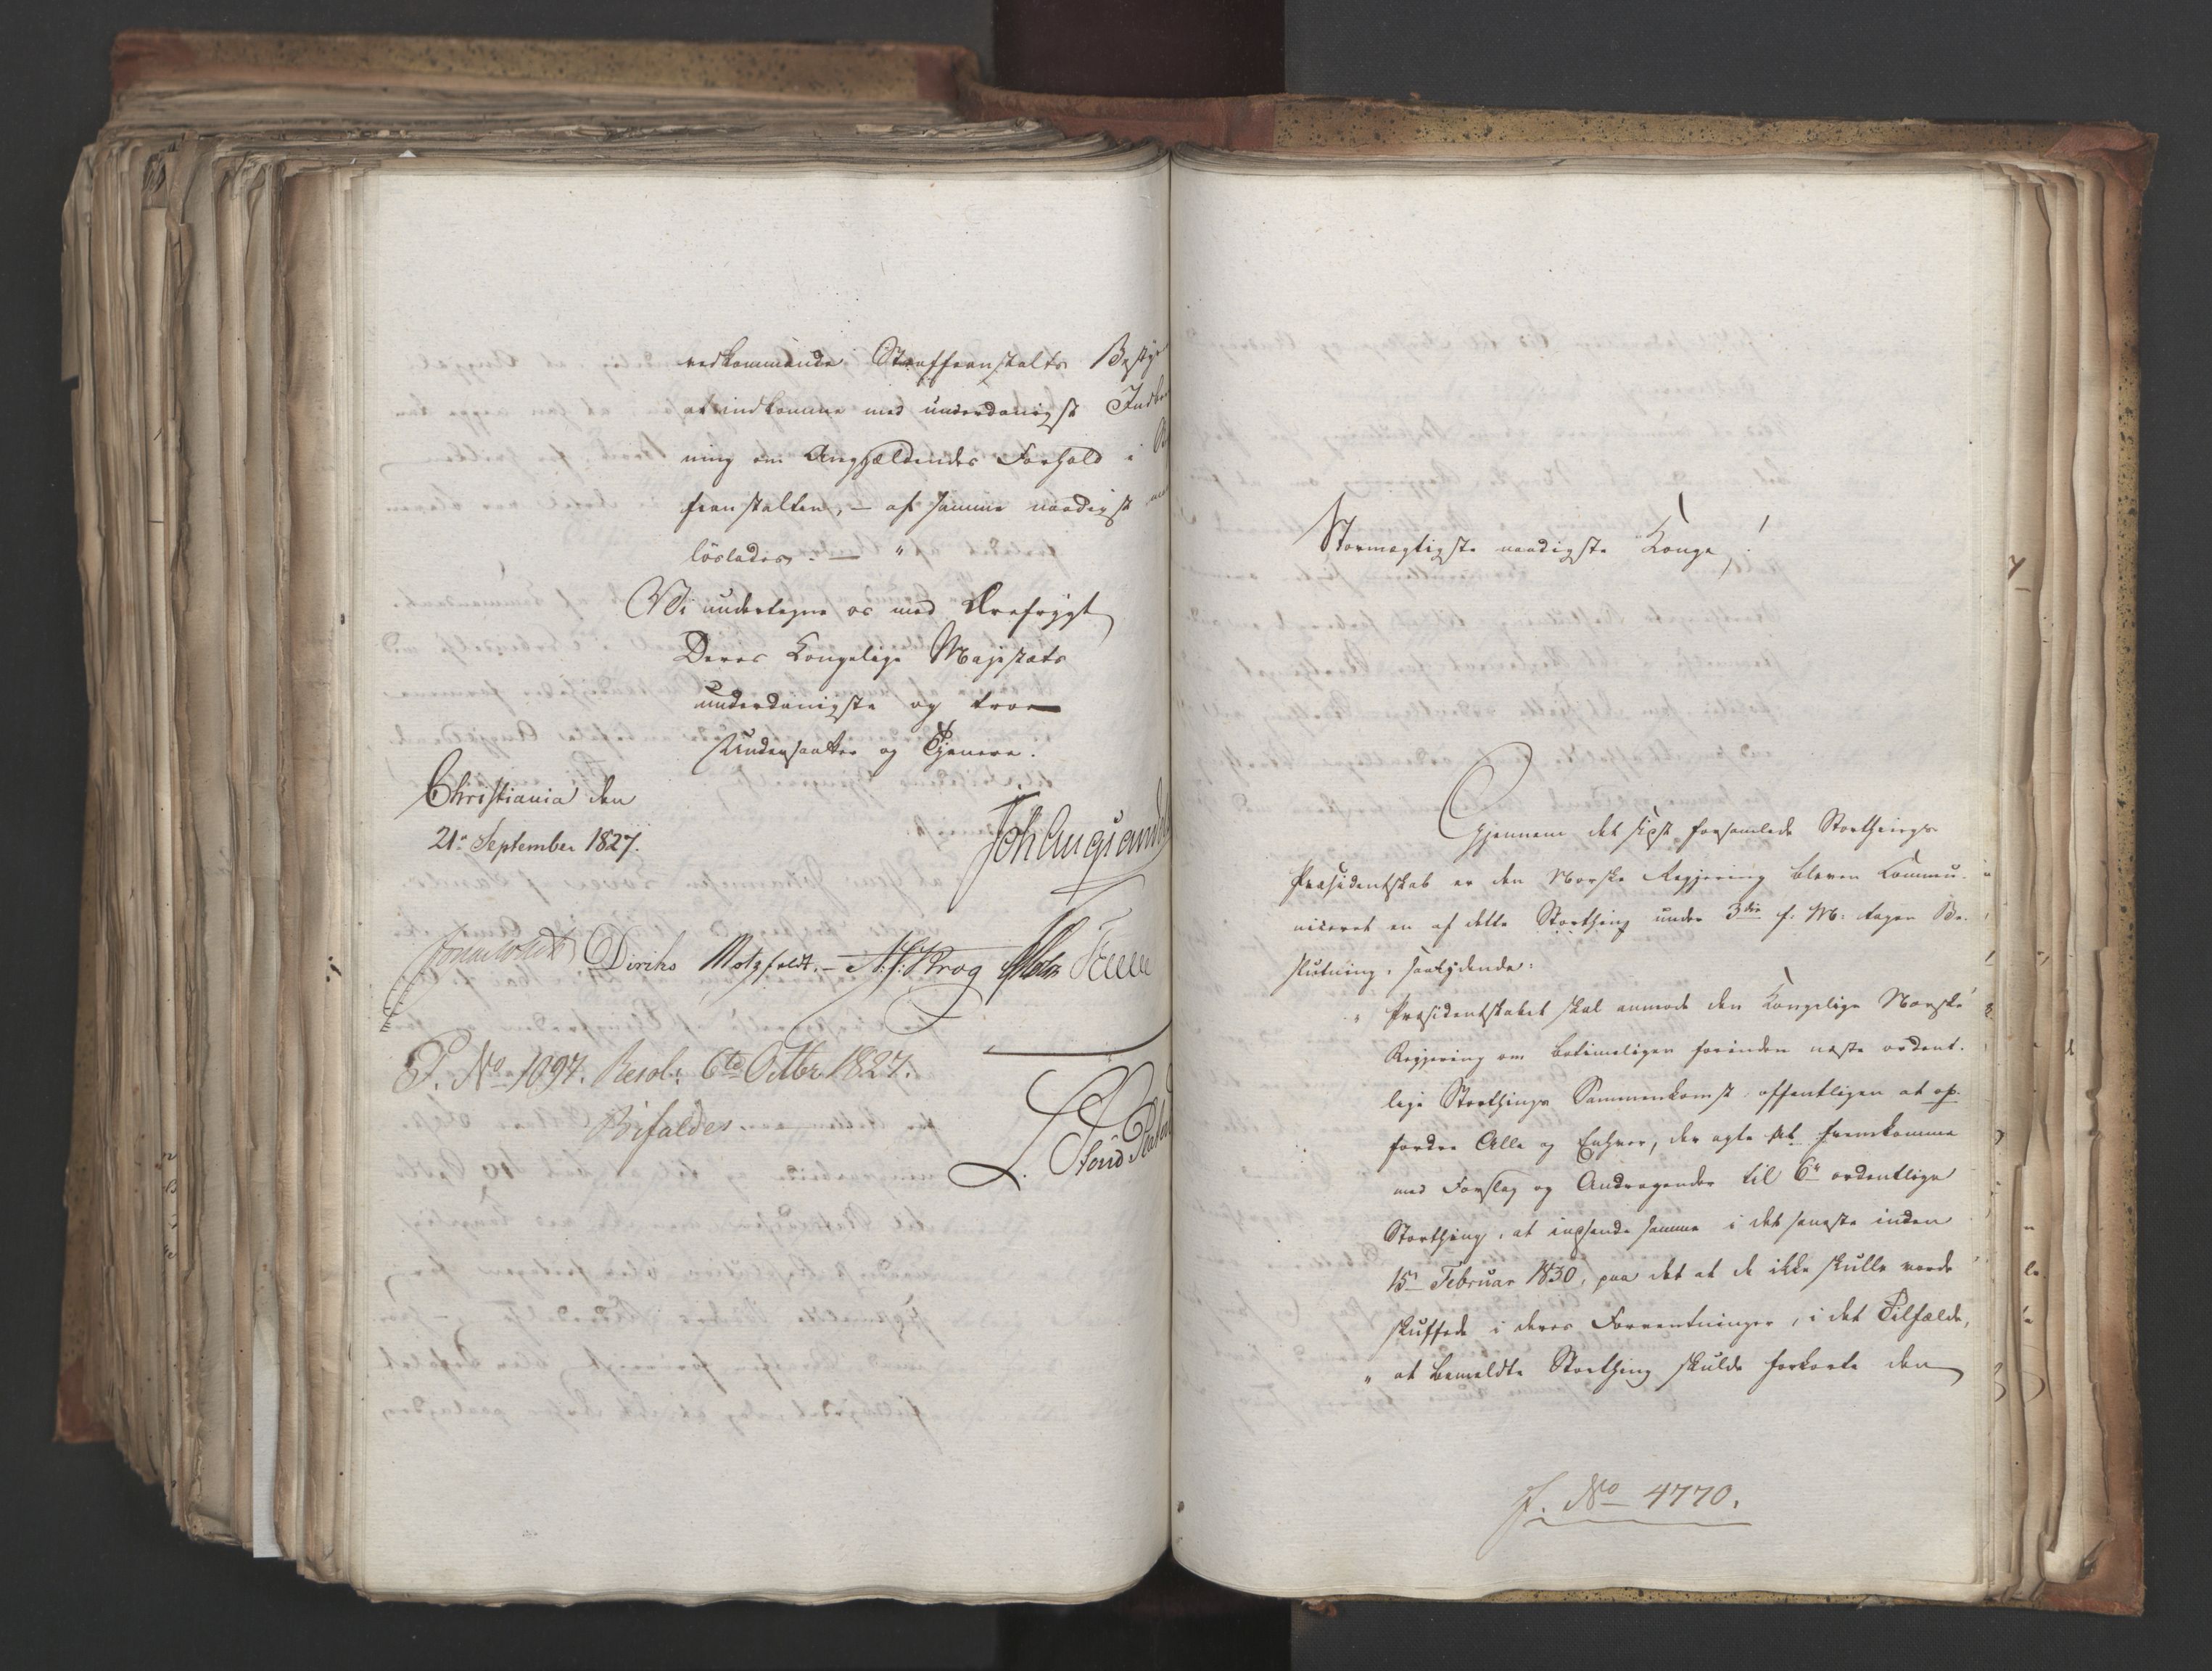 vedkommende Straffeanstalts Besty
at indkomme med underdanigst Indbe
ning om Angjældendes Forhold i
feanstalten, – af samme naadigst
löslades. — "
Vi undertegne os med Ærefrygt
Deres Kongelige Majestæts
underdanigste og troe
Undersaatter og Tjenere.
Christiania den
21de September 1827.
Joh Aug Sandels
Diriks Motzfeldt. – A. F. Krog
P. No 1097. Resol: 6te Octbr 1827.
Bifaldes.
Stormægtigste naadigste Konge!
Gjennem det sidst forsamlede Storthings
Præsidentskab er den Norske Regjering bleven Kommu-
niceret en af dette Storthing under 3die f. M: tagen Be-
slutning, saalydende:
" Præsidentskabet skal anmode den Kongelige Norske
Regjering om betimeligen forinden næste ordent-
lige Storthings Sammenkomst offentligen at op-
fordre Alle og Enhver, der agte at fremkomme
med Forslag og Andragender til 6te ordentlige
Storthing, at indsende samme i det seneste inden
15de Februar 1830, paa det at de ikke skulle vorde
skuffede i deres Forventninger, i det Tilfælde,
" at bemeldte Storthing skulde forkorte den
J. No 4770.